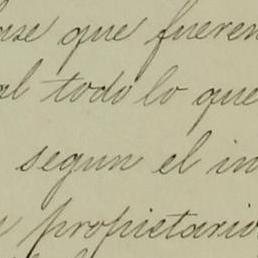 ase que fueren
al todo lo que
segun el in
propietario